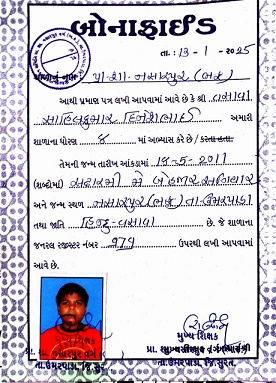 બોનાફાઈડ
તા. : 13 - 1 - 2025
શાળાનું નામ : પ્રા.શા. નસારપુર (
આથી પ્રમાણ પત્ર લખી આપવામાં આવે છે કે શ્રી વસાવા
સાહિલકુમાર દિનેશભાઈ અમારી
શાળાના ધોરણ ૪ માં અભ્યાસ કરે છે /
તેમની જન્મ તારીખ આંકડામાં 18-5-2011
(શબ્દોમાં) અઢારમી મે બે હજાર અગિયાર
અને જન્મ સ્થળ નસારપુર તા-ઉમરપાડા
તથા જાતિ હિન્દુ-વસાવા છે. જે શાળાના
જનરલ રજીસ્ટર નંબર 979 ઉપરથી લખી આપવામાં
આવે છે.
મુખ્ય શિક્ષક
તા.ઉમરપાડા, જિ.સુરત.
તા.ઉમરપાડા, જિ.સુરત.